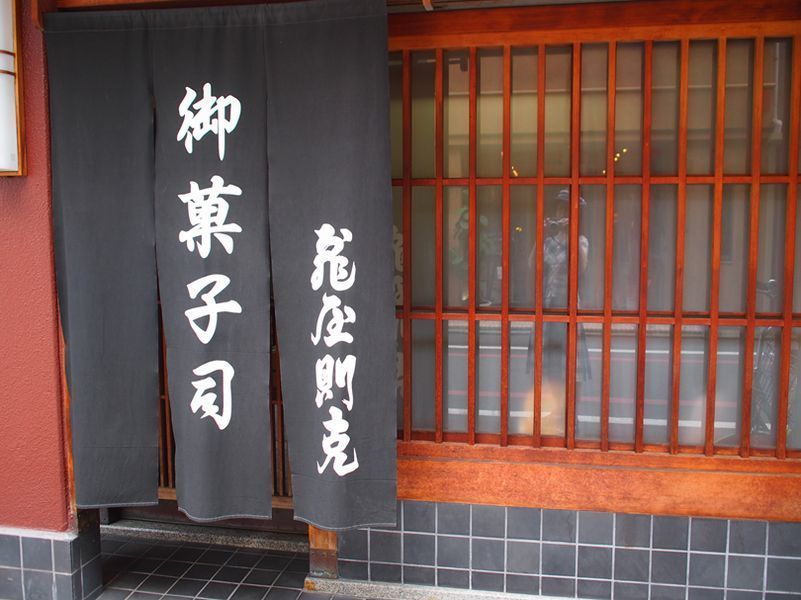 御菓子司
亀屋則克